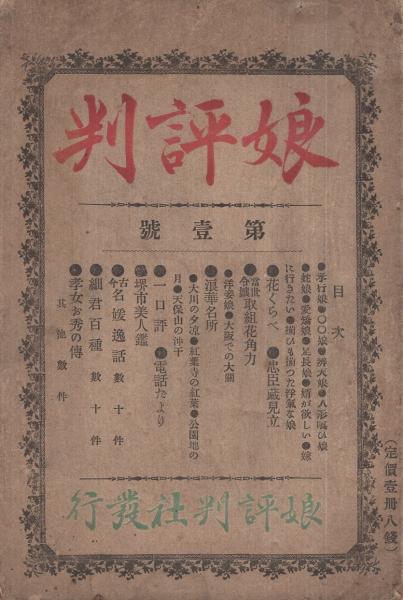 娘評判
第壹號
目次
●孝行娘●〇〇娘●辨天娘●人形喰ひ娘
●蛇娘●愛嬌娘●足長娘●婿が欲しい●嫁
に行きたい●揃ひも揃つた浮氣な娘
●花くらべ●忠臣藏見立
●當世令孃取組花角力
●洋妾娘●大阪での大關
●浪華名所
●大川の夕凉●紅葉寺の紅葉●公園地の
月●天保山の沖干
●一日評●電話だより
●堺市美人鑑
●古今名媛逸話數十件
●細君百種數十件
●孝女お秀の傳
其他數件
(定價壹册八錢)
娘評判社發行